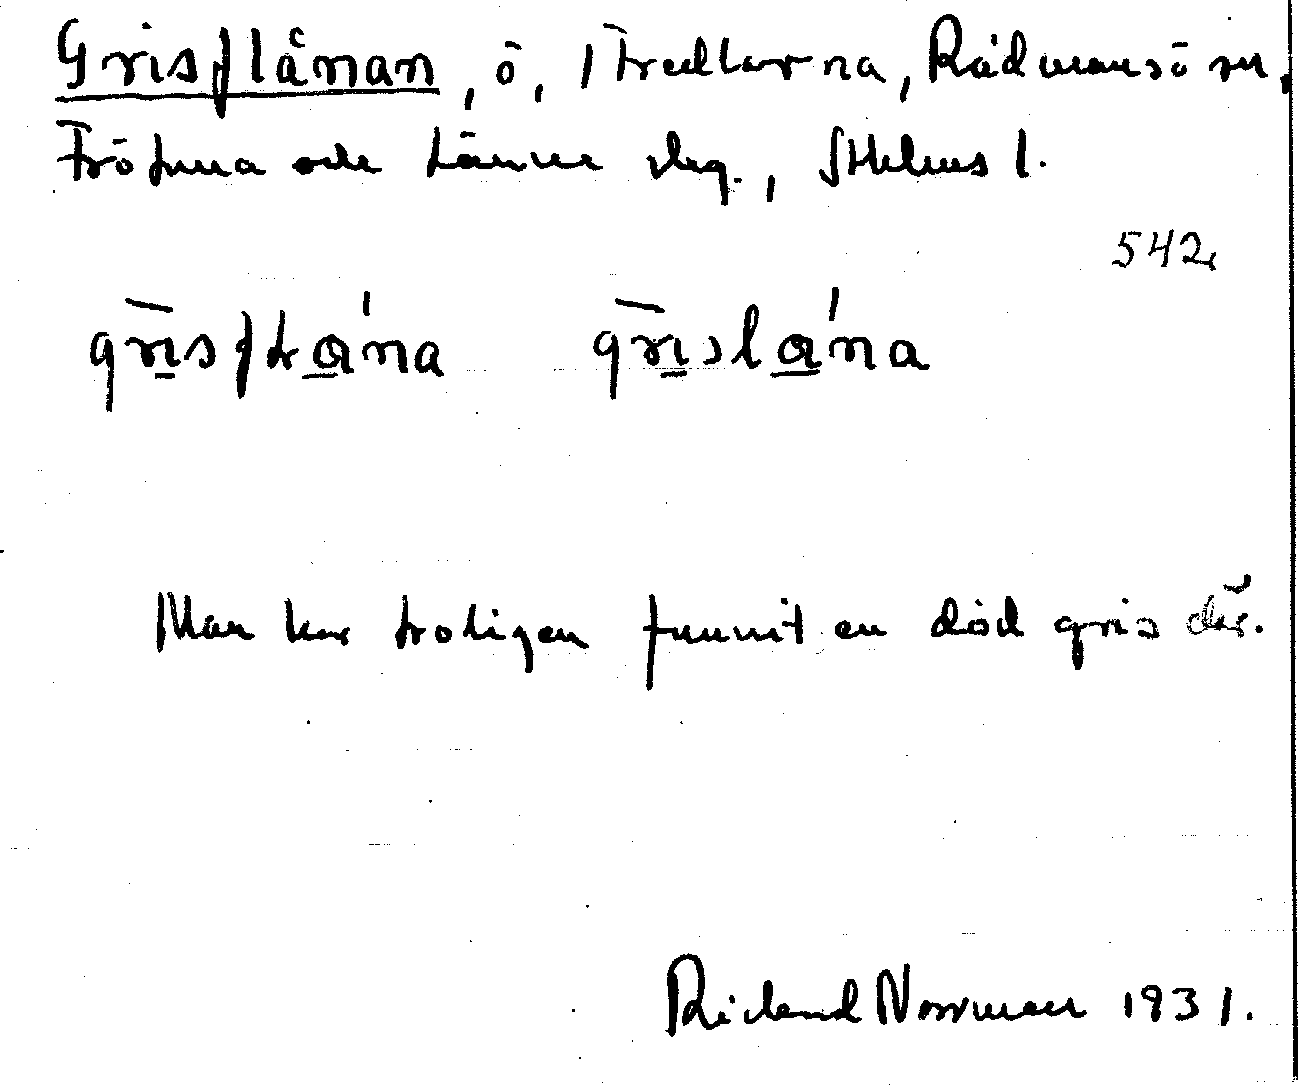 Grisflånan, ö, Fredlarna, Rådmansö sn,
Frötuna och Länna skg., Sthlms l.
542
grisflåna grislåna
Man har troligen funnit en död gris där.
Rickard Norrman 1931.